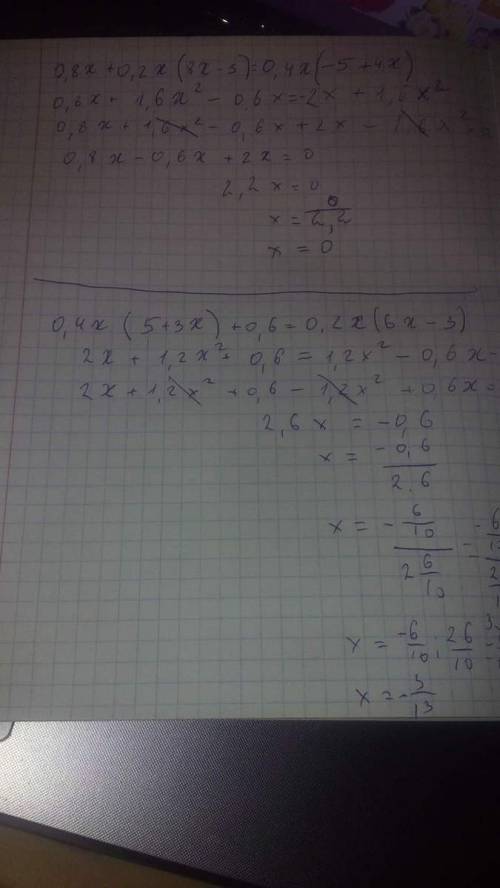 0,8x + 0,2x (8x - 3) = 0,4x (-5 + 4x)
0,8x + 1,6x² - 0,6x = -2x + 1,6x²
0,8x + 1,6x² - 0,6x + 2x - 1,6x² =
0,8x - 0,6x + 2x = 0
2,2x = 0
x = 0/2,2
x = 0
0,4x (5 + 3x) + 0,6 = 0,2x (6x - 3)
2x + 1,2x² + 0,6 = 1,2x² - 0,6x
2x + 1,2x² + 0,6 - 1,2x² + 0,6x =
2,6x = -0,6
x = -0,6/2.6
x = - 6/10 / 2 6/10 =
x = -6/10 : 26/10
x = - 3/13